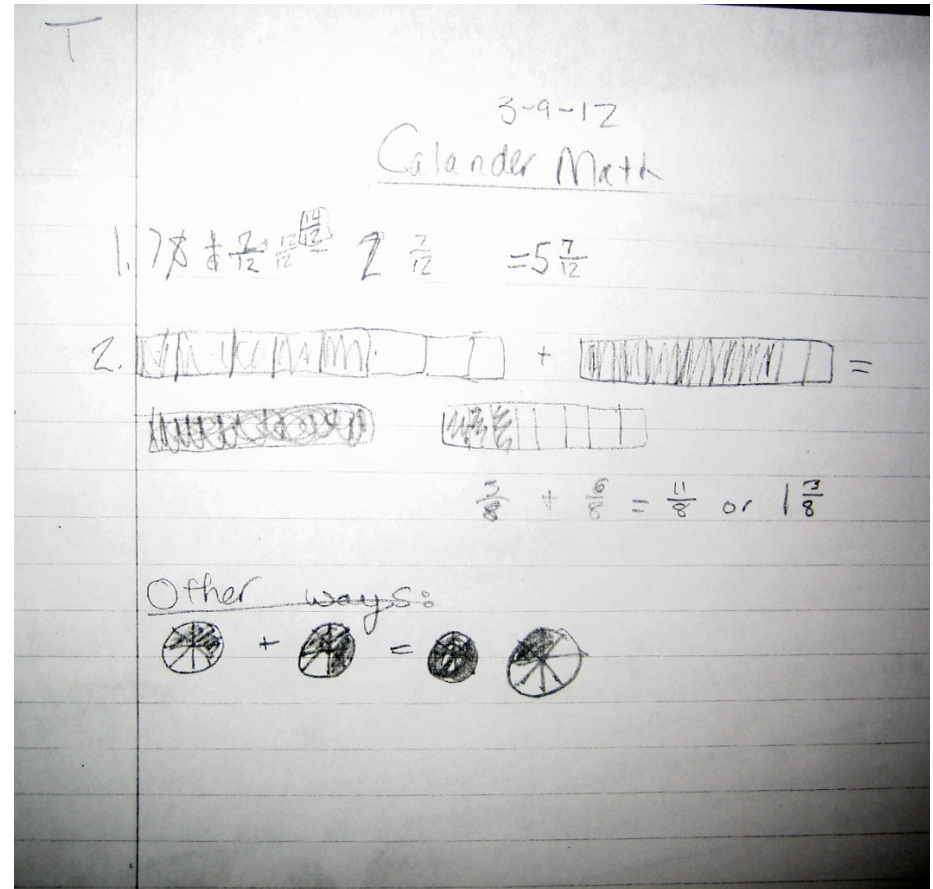 T
3-9-12
Calander Math
1. 7 8 7/12 12/12 14/12 2 7/12 = 5 7/12
2. + =
5/8 + 6/8 = 11/8 or 1 3/8
Other ways:
+ =